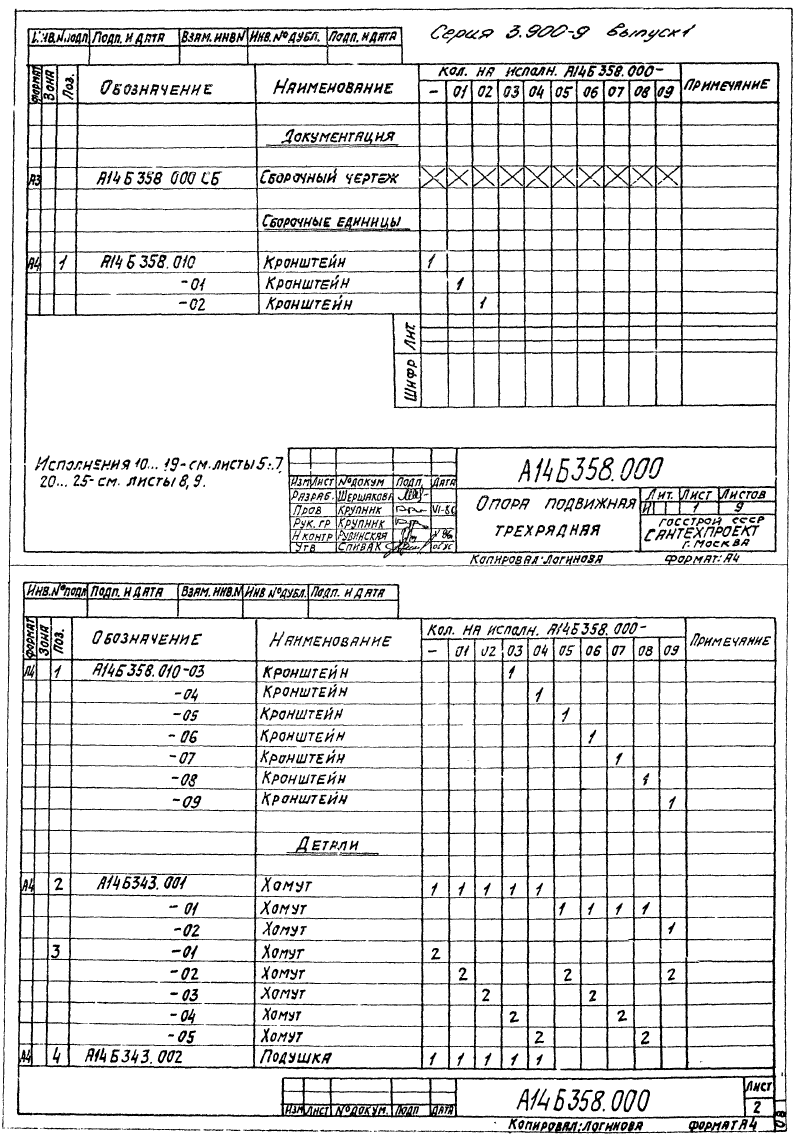 Серия 3.900-9 выпуск 1
Инв.№подл. Подп. и дата Взам. инв.№ Инв.№дубл. Подп. и дата
Формат Зона Поз. Обозначение Наименование Кол. на исполн. А14Б358.000- Примечание
- 01 02 03 04 05 06 07 08 09
Документация
А3 А14Б358 000 СБ Сборочный чертеж X X X X X X X X X X
Сборочные единицы
А4 1 А14Б358.010 Кронштейн 1
-01 Кронштейн 1
-02 Кронштейн 1
Лит.
Шифр
Исполнения 10... 19-см. листы 5÷7,
20... 25-см. листы 8, 9.
Изм Лист № докум Подп. Дата
Разраб. Шершакова
Пров Крупник VI-86
Рук. гр Крупник
Н контр Рувинская V 86
Утв Спивак
А14Б358.000
Опора подвижная
трехрядная
Лит. Лист Листов
И 1 9
Госстрой СССР
Сантехпроект
г. Москва
Копировал: Логинова Формат: А4
Инв.№подл Подп. и дата Взам. инв.№ Инв №дубл. Подп. и дата
Формат Зона Поз. Обозначение Наименование Кол. на исполн. А14Б358.000- Примечание
- 01 02 03 04 05 06 07 08 09
А4 1 А14Б358.010-03 Кронштейн 1
-04 Кронштейн 1
-05 Кронштейн 1
-06 Кронштейн 1
-07 Кронштейн 1
-08 Кронштейн 1
-09 Кронштейн 1
Детали
А4 2 А14Б343.001 Хомут 1 1 1 1 1
-01 Хомут 1 1 1 1
-02 Хомут 1
3 -01 Хомут 2
-02 Хомут 2 2 2
-03 Хомут 2 2
-04 Хомут 2 2
-05 Хомут 2 2
А4 4 А14Б343.002 Подушка 1 1 1 1 1
Изм Лист № докум. Подп Дата
А14Б358.000
Лист
2
Копировал: Логинова Формат А4